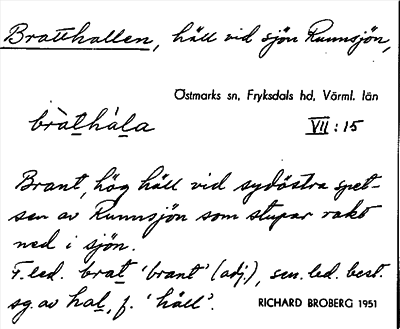 Bratthallen, häll vid sjön Runnsjön,
Östmarks sn, Fryksdals hd, Värml. län
bràthála VII:15
Brant, hög häll vid sydöstra spet-
sen av Runnsjön som stupar rakt
ned i sjön.
F.led. brat 'brant' (adj.), sen. led. best.
sg. av hal, f. 'häll'.
RICHARD BROBERG 1951